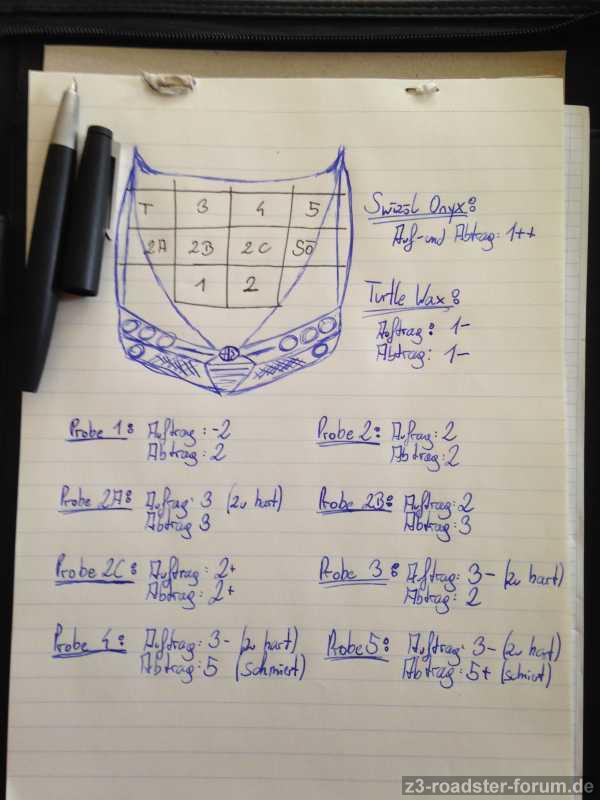 T 3 4 5
2A 2B 2C SÖ
1 2
Swizöl Onyx:
Auf- und Abtrag: 1++
Turtle Wax:
Auftrag: 1-
Abtrag: 1-
Probe 1: Auftrag: -2
Abtrag: 2
Probe 2: Auftrag: 2
Abtrag: 2
Probe 2A: Auftrag: 3 (zu hart)
Abtrag 3
Probe 2B: Auftrag: 2
Abtrag: 3
Probe 2C: Auftrag: 2+
Abtrag: 2+
Probe 3: Auftrag: 3- (zu hart)
Abtrag: 2
Probe 4: Auftrag: 3- (zu hart)
Abtrag: 5 (schmiert)
Probe 5: Auftrag: 3- (zu hart)
Abtrag: 5+ (schmiert)
z3-roadster-forum.de